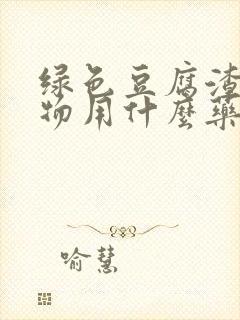 绿色豆腐渣
物用什麼藥
喻慧